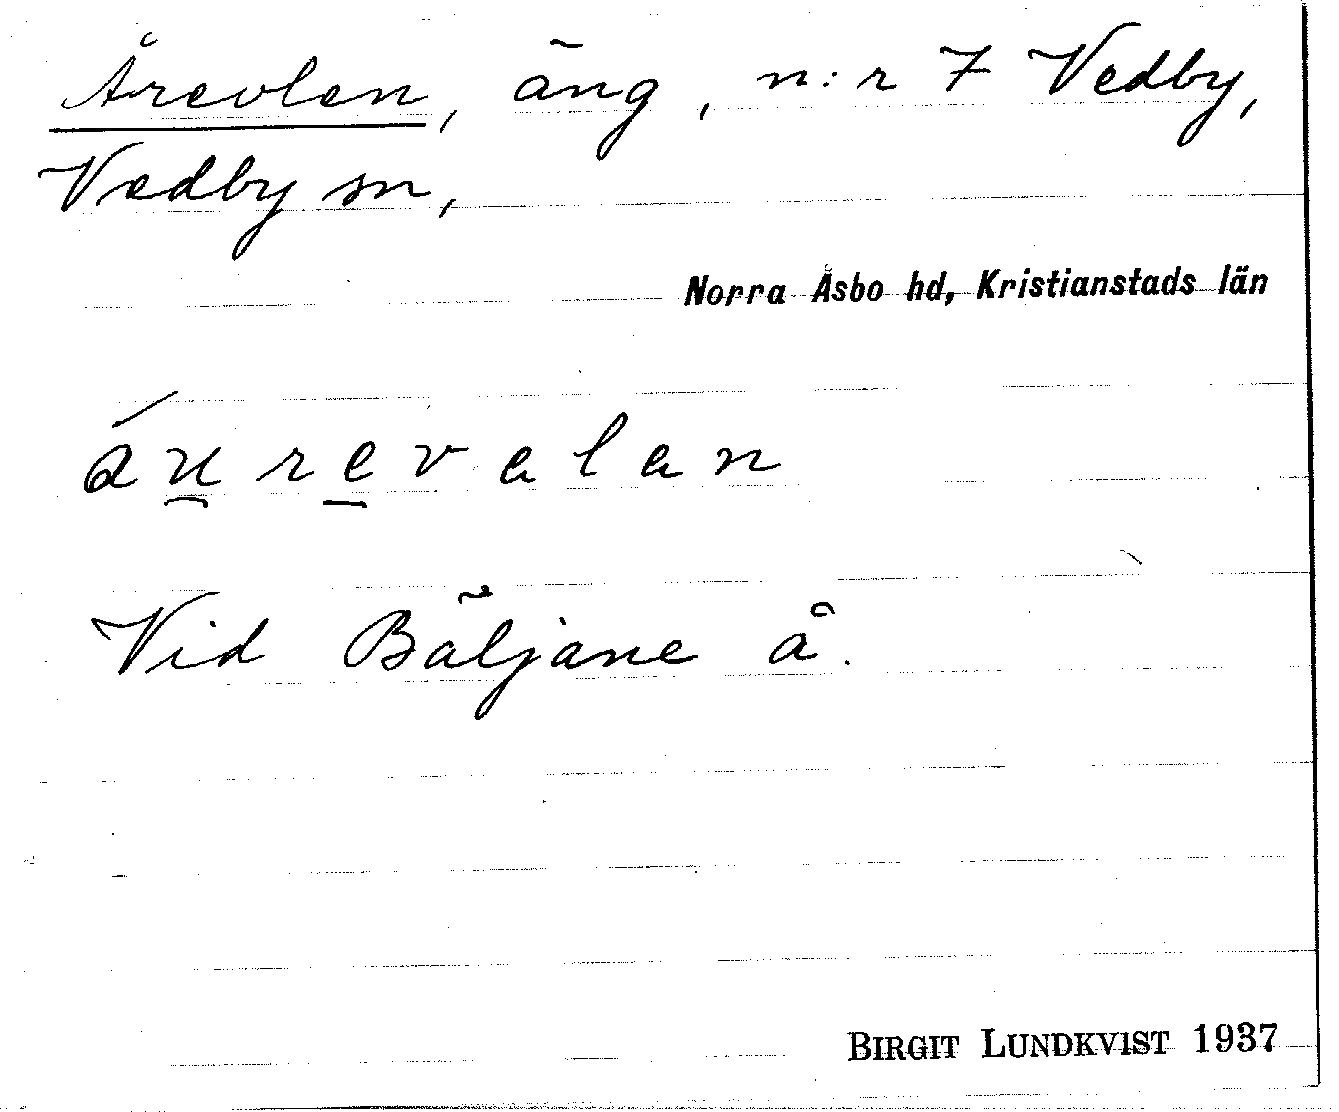 Årevlen, äng, n:r 7 Vedby,
Vedby sn,
Norra Åsbo hd, Kristianstads län
áu̯re̱vɐlɐn
Vid Bäljane å.
BIRGIT LUNDKVIST 1937